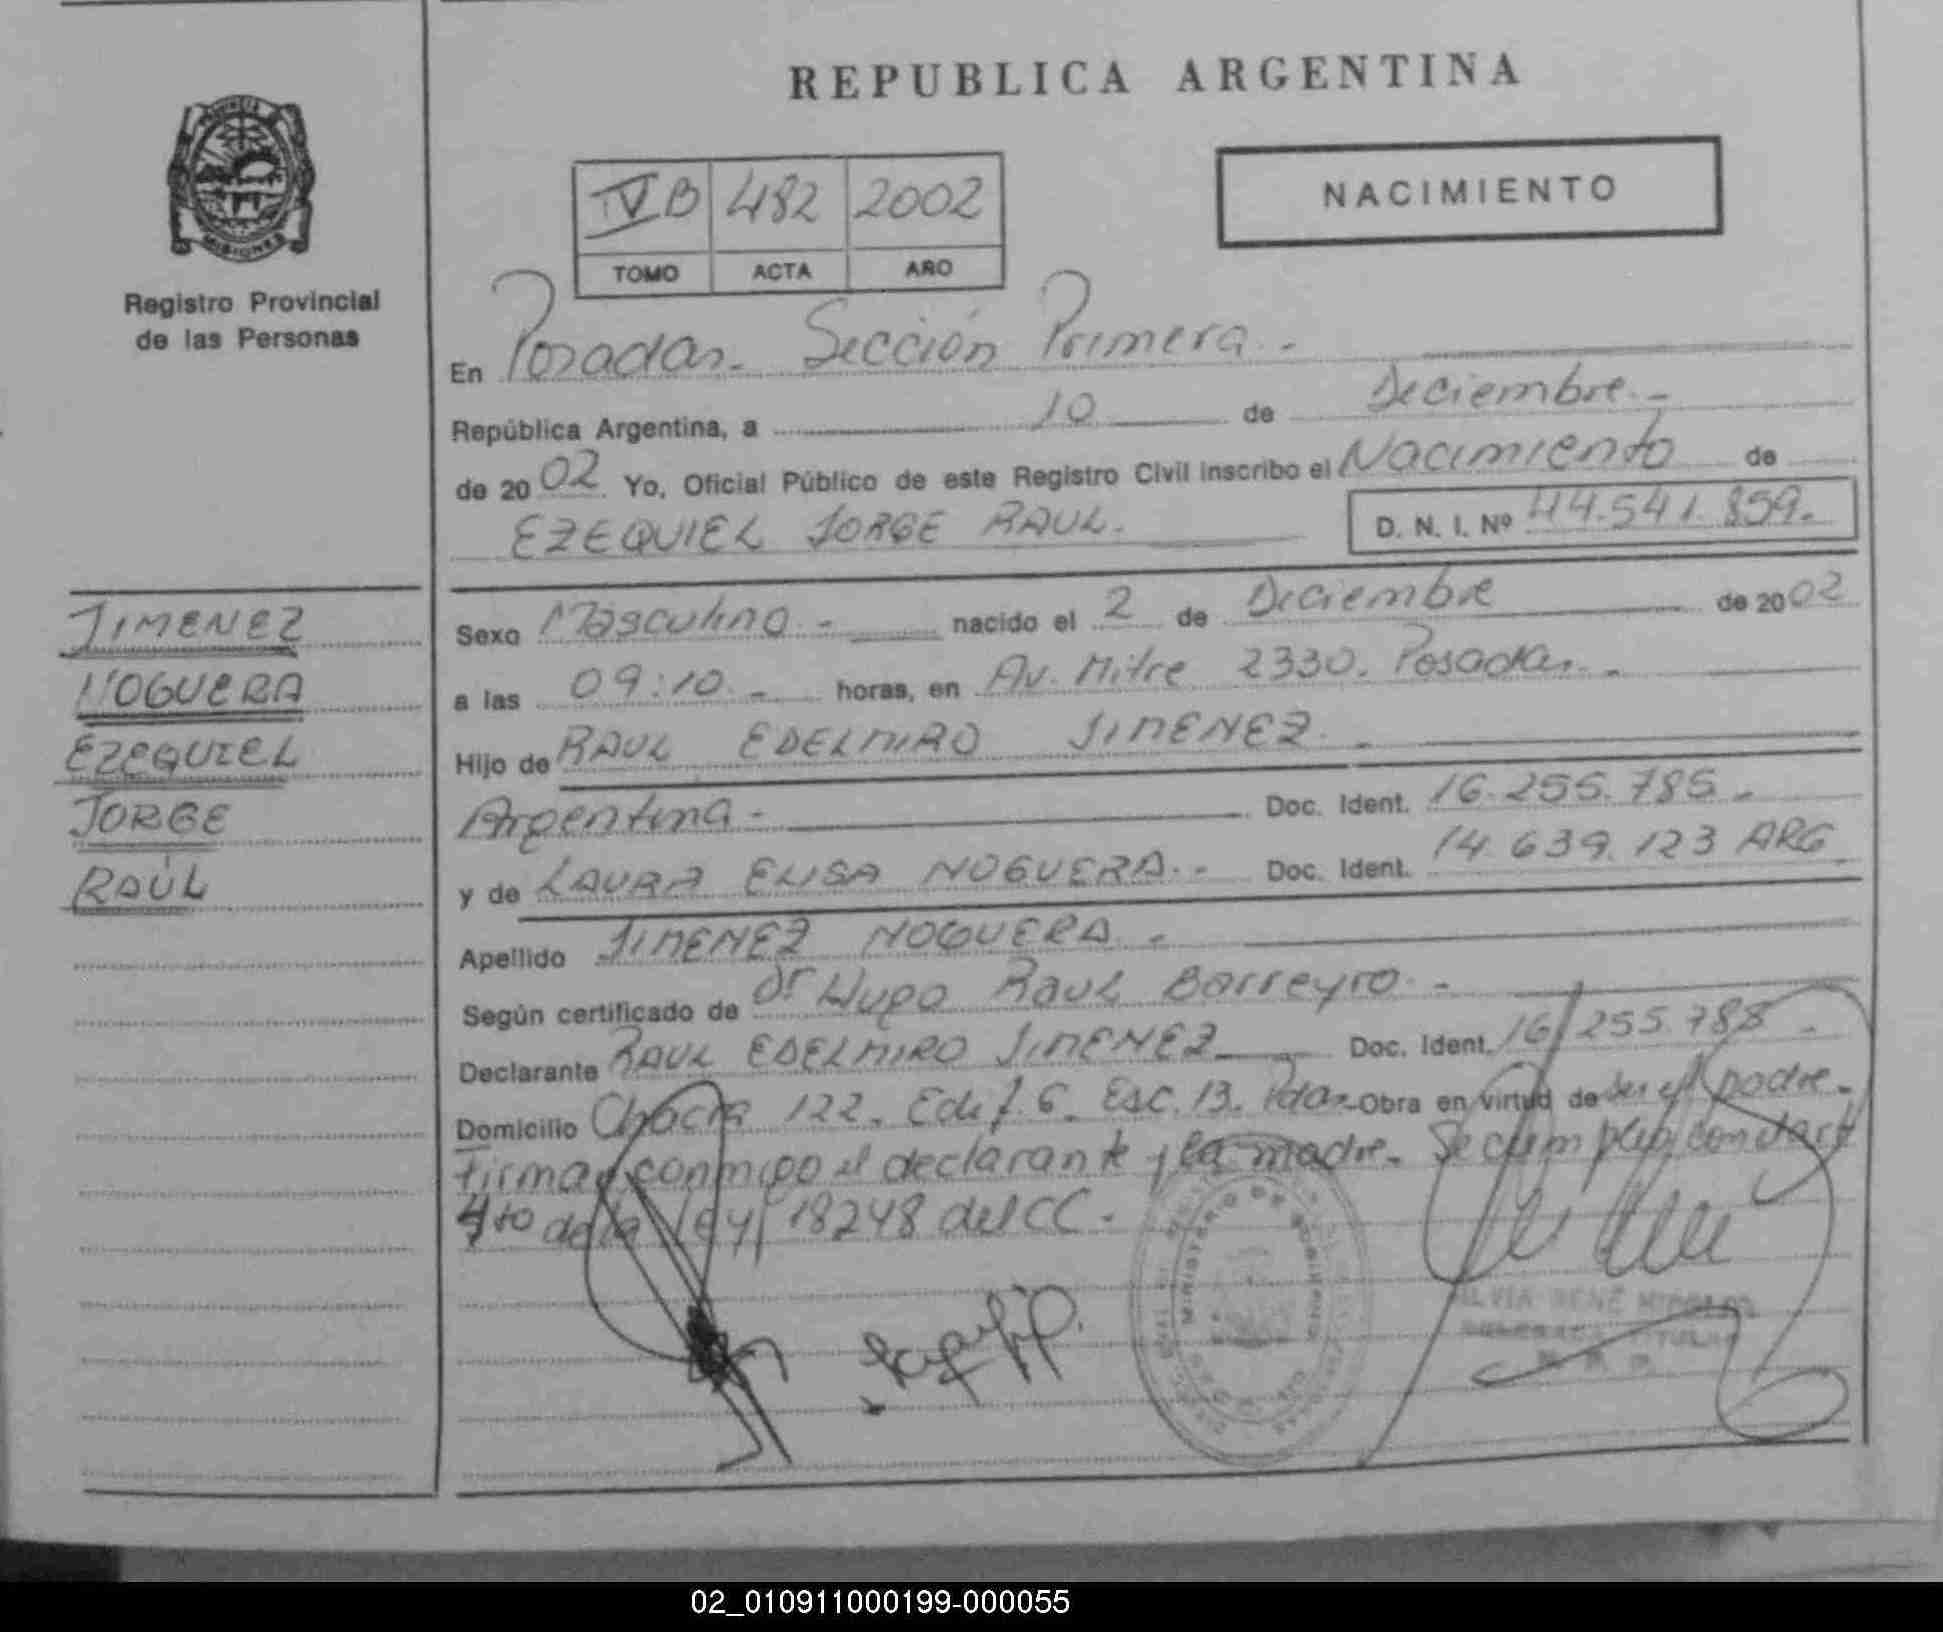 REPUBLICA ARGENTINA
PROVINCIA
MISIONES
Registro Provincial
de las Personas
NACIMIENTO
IV B 482 2002
TOMO ACTA AÑO
En Posadas. Sección Primera.-
República Argentina, a 10 de Deciembre.-
de 2002 Yo, Oficial Público de este Registro Civil inscribo el Nacimiento de
EZEQUIEL JORGE RAUL.
D. N. I. Nº 44.541.859.
JIMENEZ
NOGUERA
EZEQUIEL
JORGE
RAÚL
Sexo Masculino.- nacido el 2 de Diciembre de 2002
a las 09:10.- horas, en Av. Mitre 2330. Posadas.-
Hijo de RAUL EDELMIRO JIMENEZ.-
Argentina.- Doc. Ident. 16.255.785.-
y de LAURA ELISA NOGUERA.- Doc. Ident. 14.639.123 ARG
Apellido JIMENEZ NOGUERA.-
Según certificado de Dr Hugo Raul Barreyro.-
Declarante RAUL EDELMIRO JIMENEZ Doc. Ident. 16.255.785.-
Domicilio Chacra 122. Edif. 6. Esc. 13. Pdas. Obra en virtud de ser el padre.-
Firma conmigo el declarante y la madre. Se cumple con el art
4to de la ley 18248 del CC.-
MINISTERIO DE GOBIERNO
02_010911000199-000055